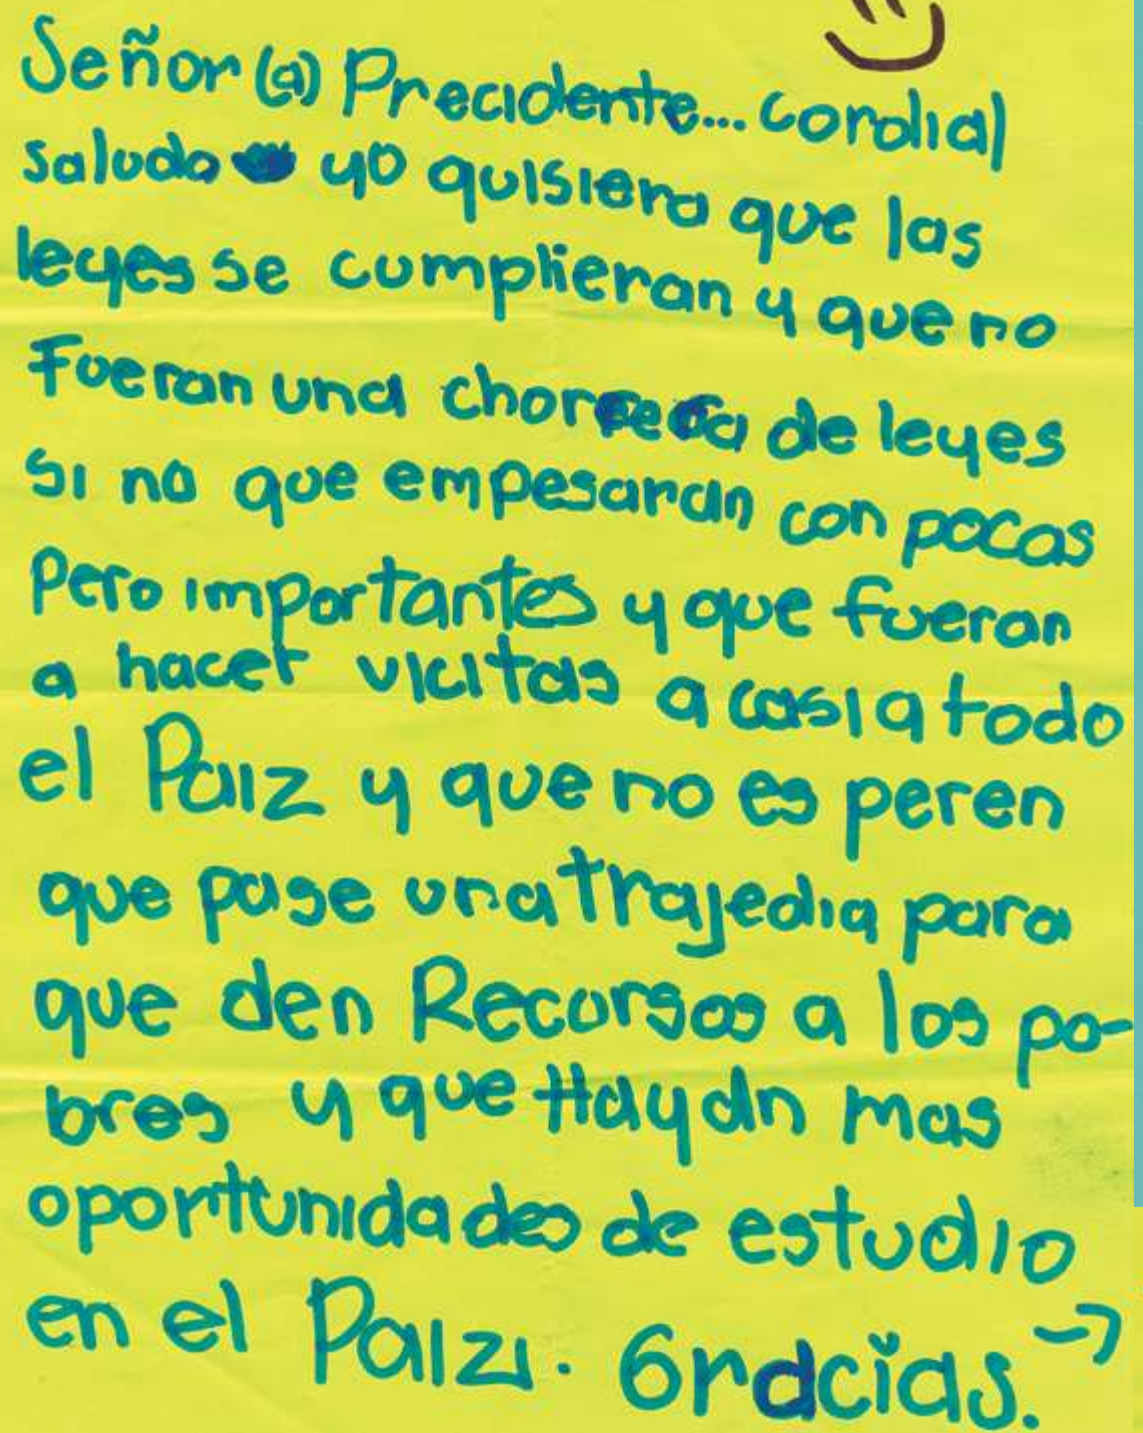 Señor(a) Precidente... cordial
saludo yo quisiera que las
leyes se cumplieran y que no
Fueran una chorrera de leyes
si no que empesaran con pocas
Pero importantes y que fueran
a hacer vicitas a casi a todo
el Paiz y que no es peren
que pase una trajedia para
que den Recursos a los po-
bres y que Hayan mas
oportunidades de estudio
en el Paiz. Gracias.